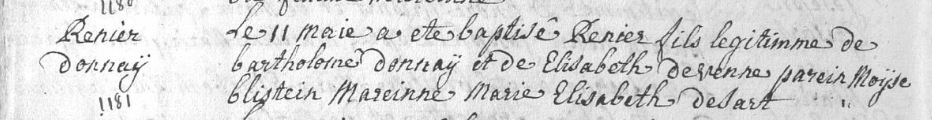 1180
Renier Le 11 maie a ete baptisé Renier fils legitimme de
donnaÿ bartholomé donnaÿ et de Elisabeth devenne parein Moÿse
1181 blistein Mareinne Marie Elisabeth desart "